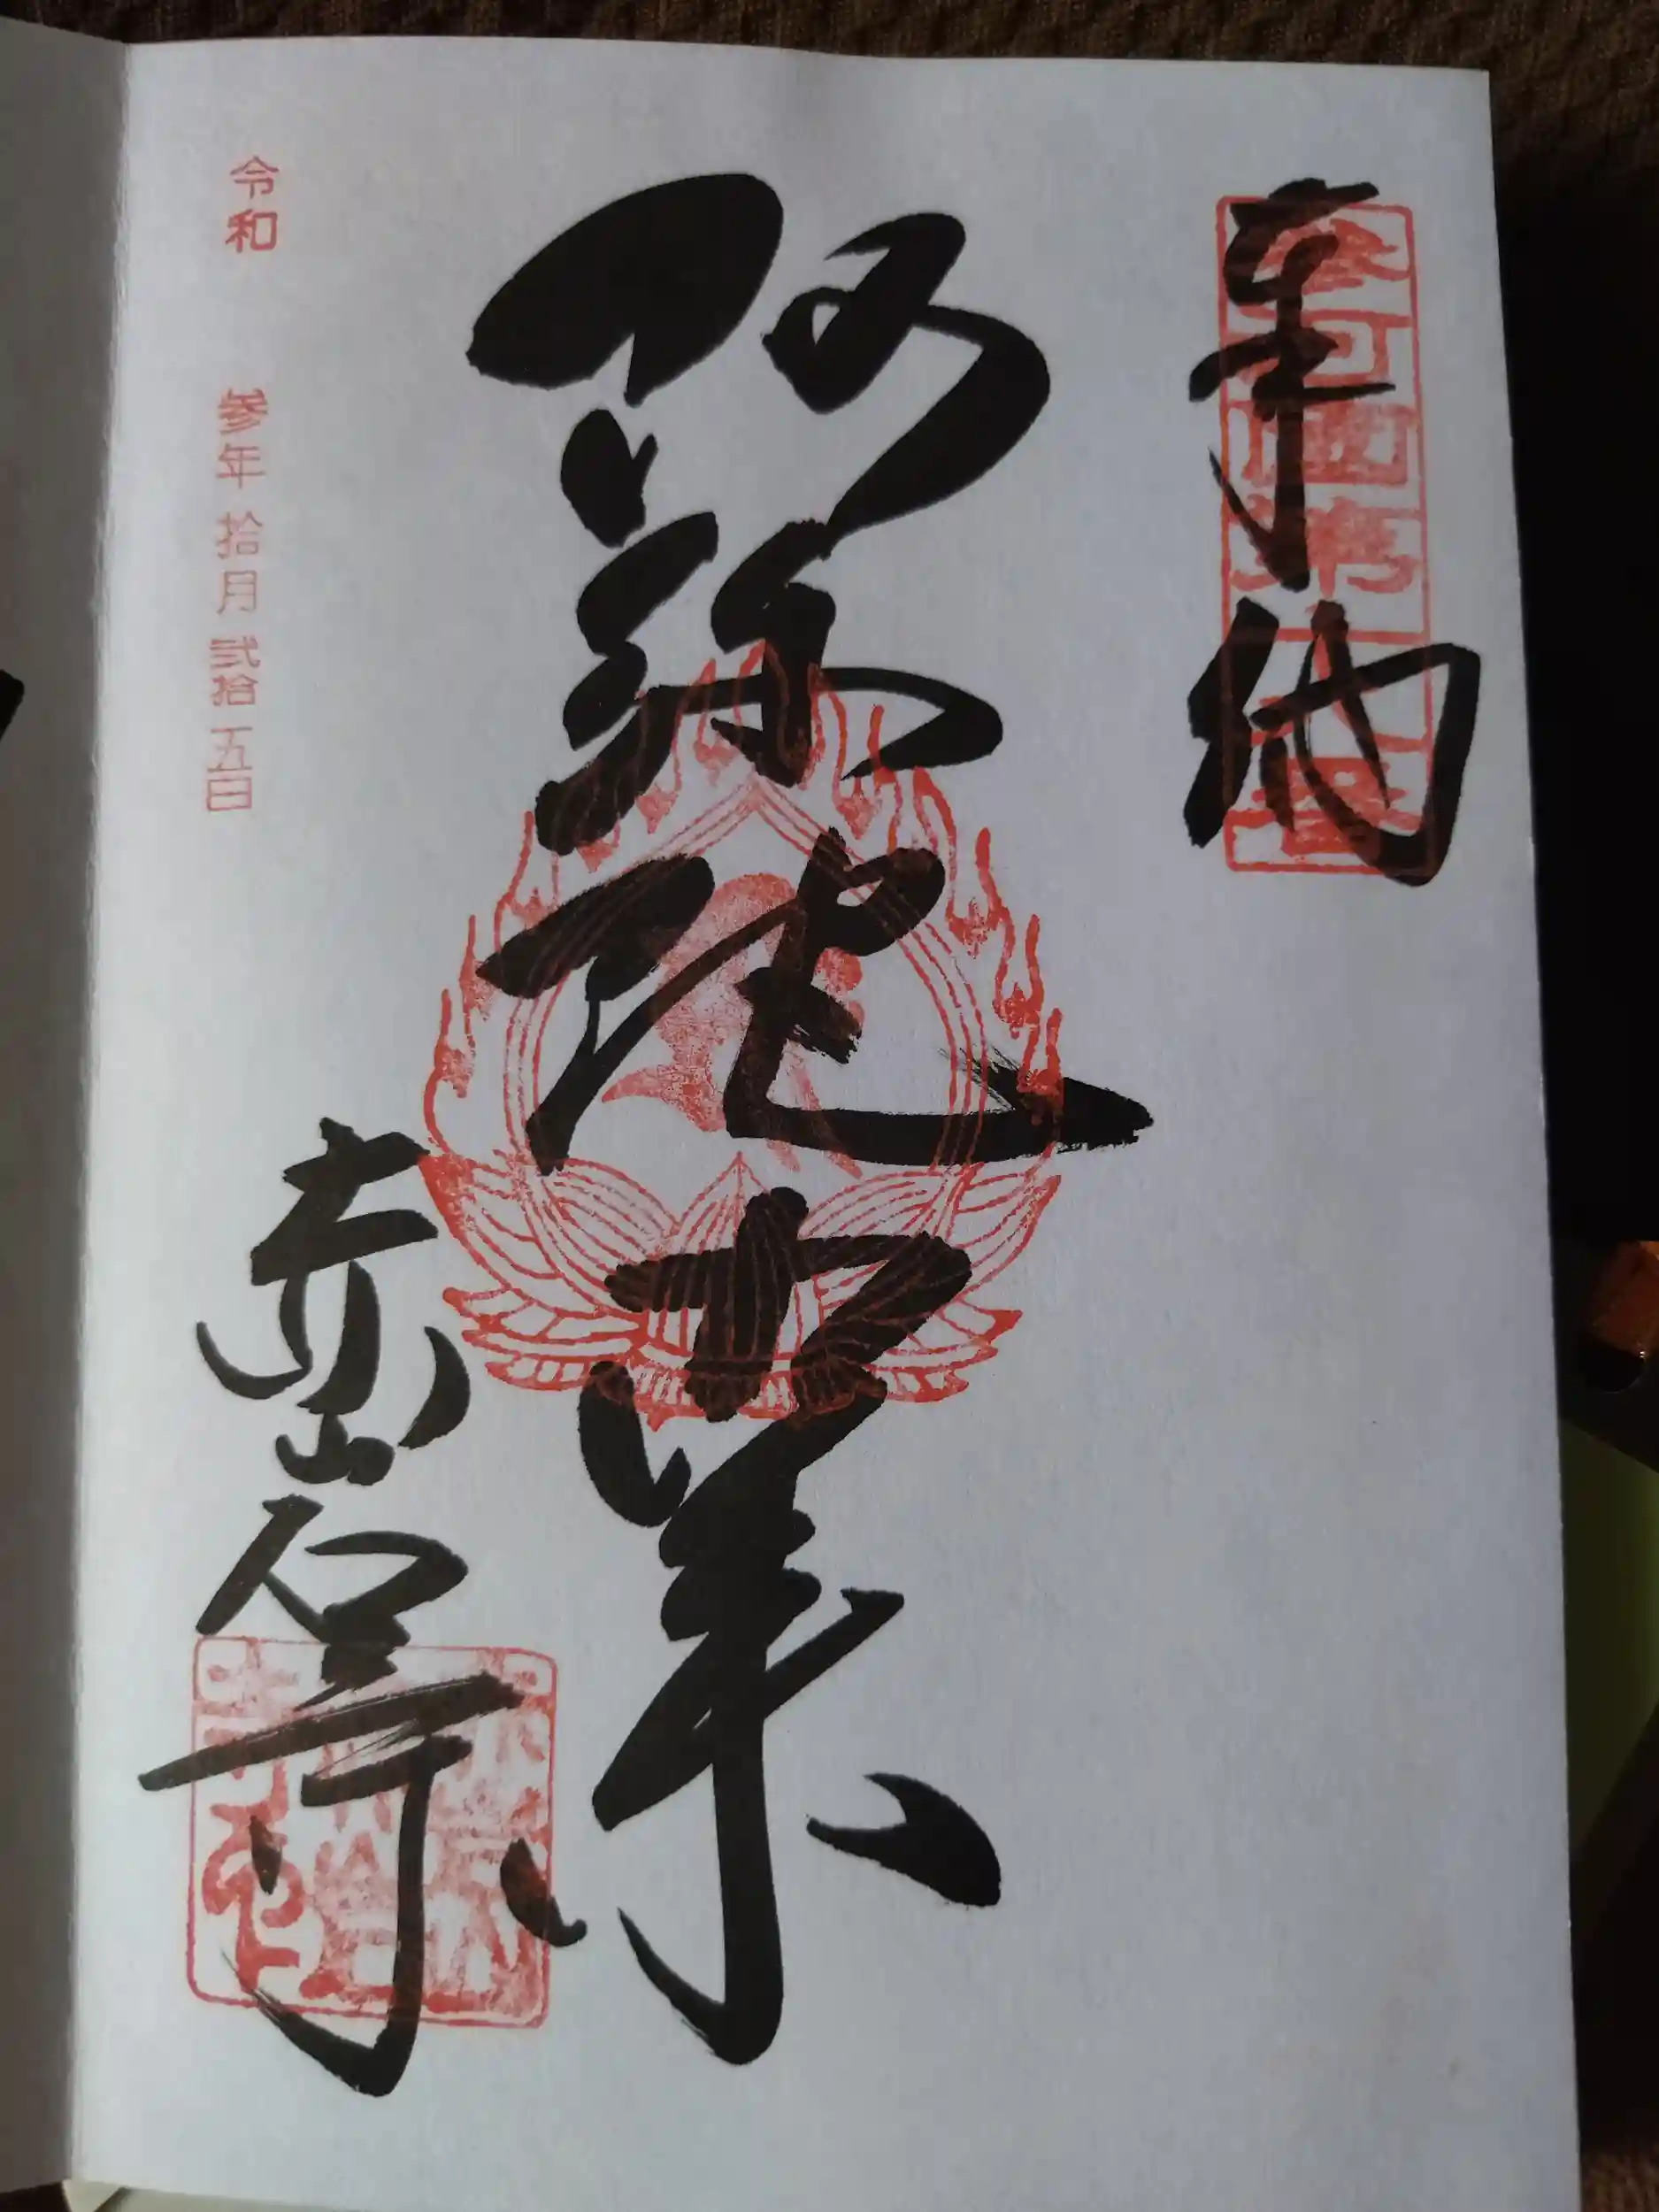 奉納
阿弥陀如来
赤岩寺
令和 参年 拾月 弐拾五日